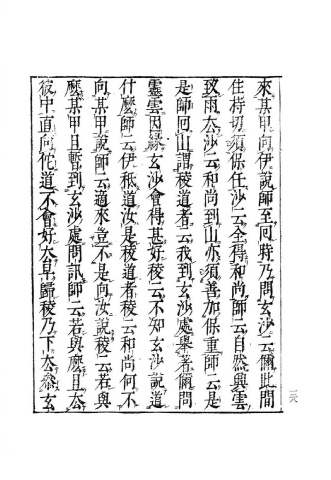 來某甲向伊說師至囘時乃問玄沙云儞此間
住持切須保任沙云全得和尚師云自然興雲
致雨去沙云和尚到山亦須善加保重師云是
是師囘山謂稜道者云我到玄沙處舉著儞問
靈雲因緣玄沙會得甚好稜云不知玄沙說道
什麼師云伊秖道汝是稜道者稜云和尚何不
向某甲說師云適來豈不是向汝說稜云若與
麼某甲且暫到玄沙處問訊師云若與麼且去
彼中直向佗道不會好去早歸稜乃下去叅玄